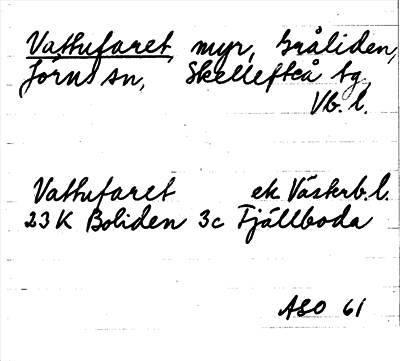 Vattufaret, myr, Gråliden,
Jörns sn, Skellefteå tg,
Vb. l.
Vattufaret ek Västerb. l.
23 K Boliden 3c Fjällboda
ASO 61